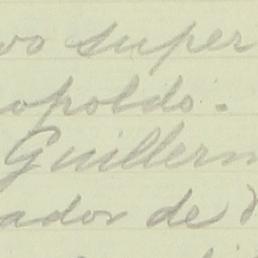 vo super
opoldo.
Guillerm
ador de